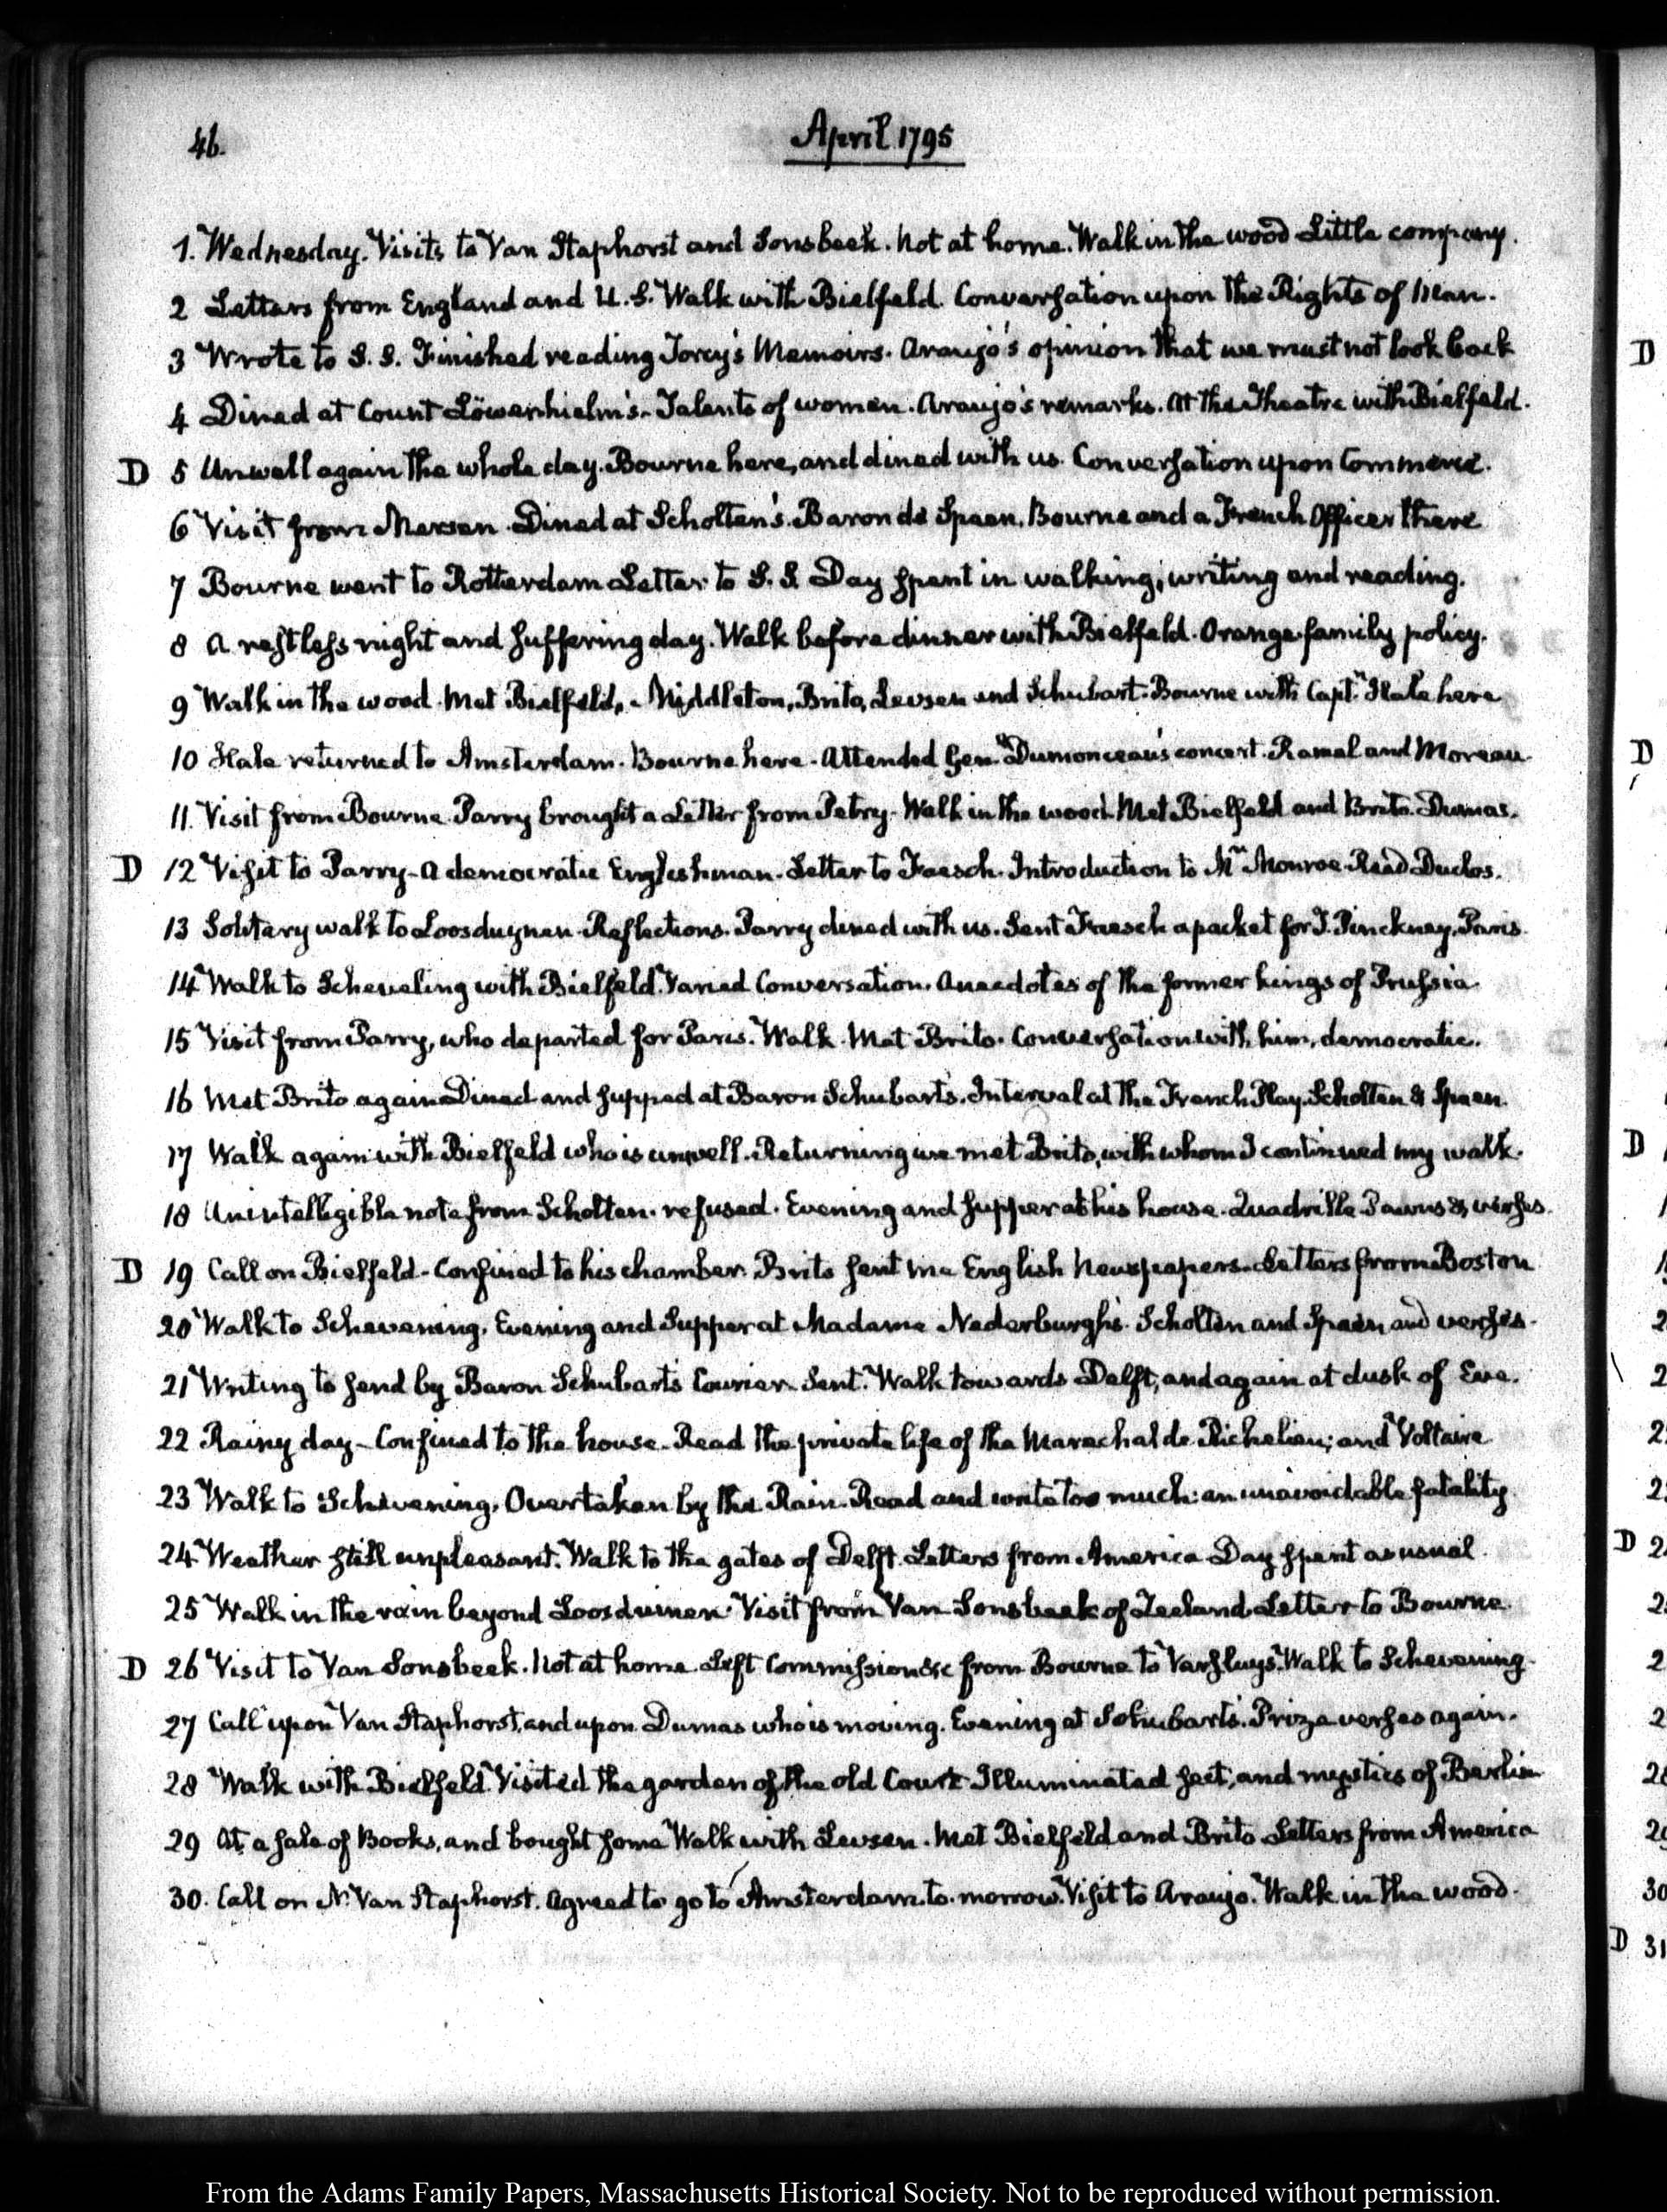 46.
April 1795
1. Wednesday. Visits to Van Staphorst and Sonsbeek. Not at home. Walk in the wood Little company.
2 Letters from England and U.S. Walk with Bielfeld. Conversation upon the Rights of Man.
3 Wrote to S. S. Finished reading Torcy's Memoirs. Araujo's opinion that we must not look back
4 Dined at Count Löwenhielm's. Talents of women. Araujo's remarks. At the Theatre with Bielfeld.
D 5 Unwell again the whole day. Bourne here, and dined with us. Conversation upon Commerce.
6 Visit from Mersen. Dined at Scholten's. Baron de Spaen, Bourne and a French Officer there
7 Bourne went to Rotterdam Letter to S. S. Day spent in walking, writing and reading.
8 A restless night and suffering day. Walk before dinner with Bielfeld. Orange family policy.
9 Walk in the wood. Met Bielfeld, Middleton, Brito, Levsen and Schubart. Bourne with Capt. Hale here
10 Hale returned to Amsterdam. Bourne here. Attended Genl. Dumonceau's concert. Ramel and Moreau.
11. Visit from Bourne. Parry brought a Letter from Petry. Walk in the wood. Met Bielfeld and Brito. Dumas.
D 12 Visit to Parry. A democratic Englishman. Letter to Faesch. Introduction to Mr. Monroe. Read Duclos.
13 Solitary walk to Loosduynen. Reflections. Parry dined with us. Sent Faesch a packet for T. Pinckney, Paris.
14 Walk to Scheveling with Bielfeld. Varied Conversation. Anecdotes of the former kings of Prussia.
15 Visit from Parry, who departed for Paris. Walk. Met Brito. Conversation with him, democratic.
16 Met Brito again Dined and supped at Baron Schubart's. Interval at the French Play. Scholten & Spaen.
17 Walk again with Bielfeld who is unwell. Returning we met Brito, with whom I continued my walk.
18 Unintelligible note from Scholten. refused. Evening and supper at his house. Quadrille Pawns & verses.
D 19 Call on Bielfeld. Confined to his chamber. Brito sent me English Newspapers. Letters from Boston
20 Walk to Schevening. Evening and Supper at Madame Nederburgh's. Scholten and Spaen and verses.
21 Writing to send by Baron Schubart's Courier. Sent. Walk towards Delft, and again at dusk of Eve.
22 Rainy day. Confined to the house. Read the private life of the Marechal de Richelieu; and Voltaire
23 Walk to Schevening. Overtaken by the Rain. Read and write too much: an unavoidable fatality.
24 Weather still unpleasant. Walk to the gates of Delft. Letters from America. Day spent as usual.
25 Walk in the rain beyond Loosduinen. Visit from Van Sonsbeek of Zeeland. Letter to Bourne.
D 26 Visit to Van Sonsbeek. Not at home. Left Commission &c from Bourne to Varsluys. Walk to Schevening.
27 Call upon Van Staphorst, and upon Dumas who is moving. Evening at Schubart's. Prize verses again.
28 Walk with Bielfeld. Visited the garden of the old Court. Illuminated sect, and mystics of Berlin
29 At a sale of Books, and bought some Walk with Levsen. Met Bielfeld and Brito. Letters from America
30. Call on N. Van Staphorst. Agreed to go to Amsterdam to-morrow. Visit to Araujo. Walk in the wood.
D
D
D
D 2
30
D 31
From the Adams Family Papers, Massachusetts Historical Society. Not to be reproduced without permission.